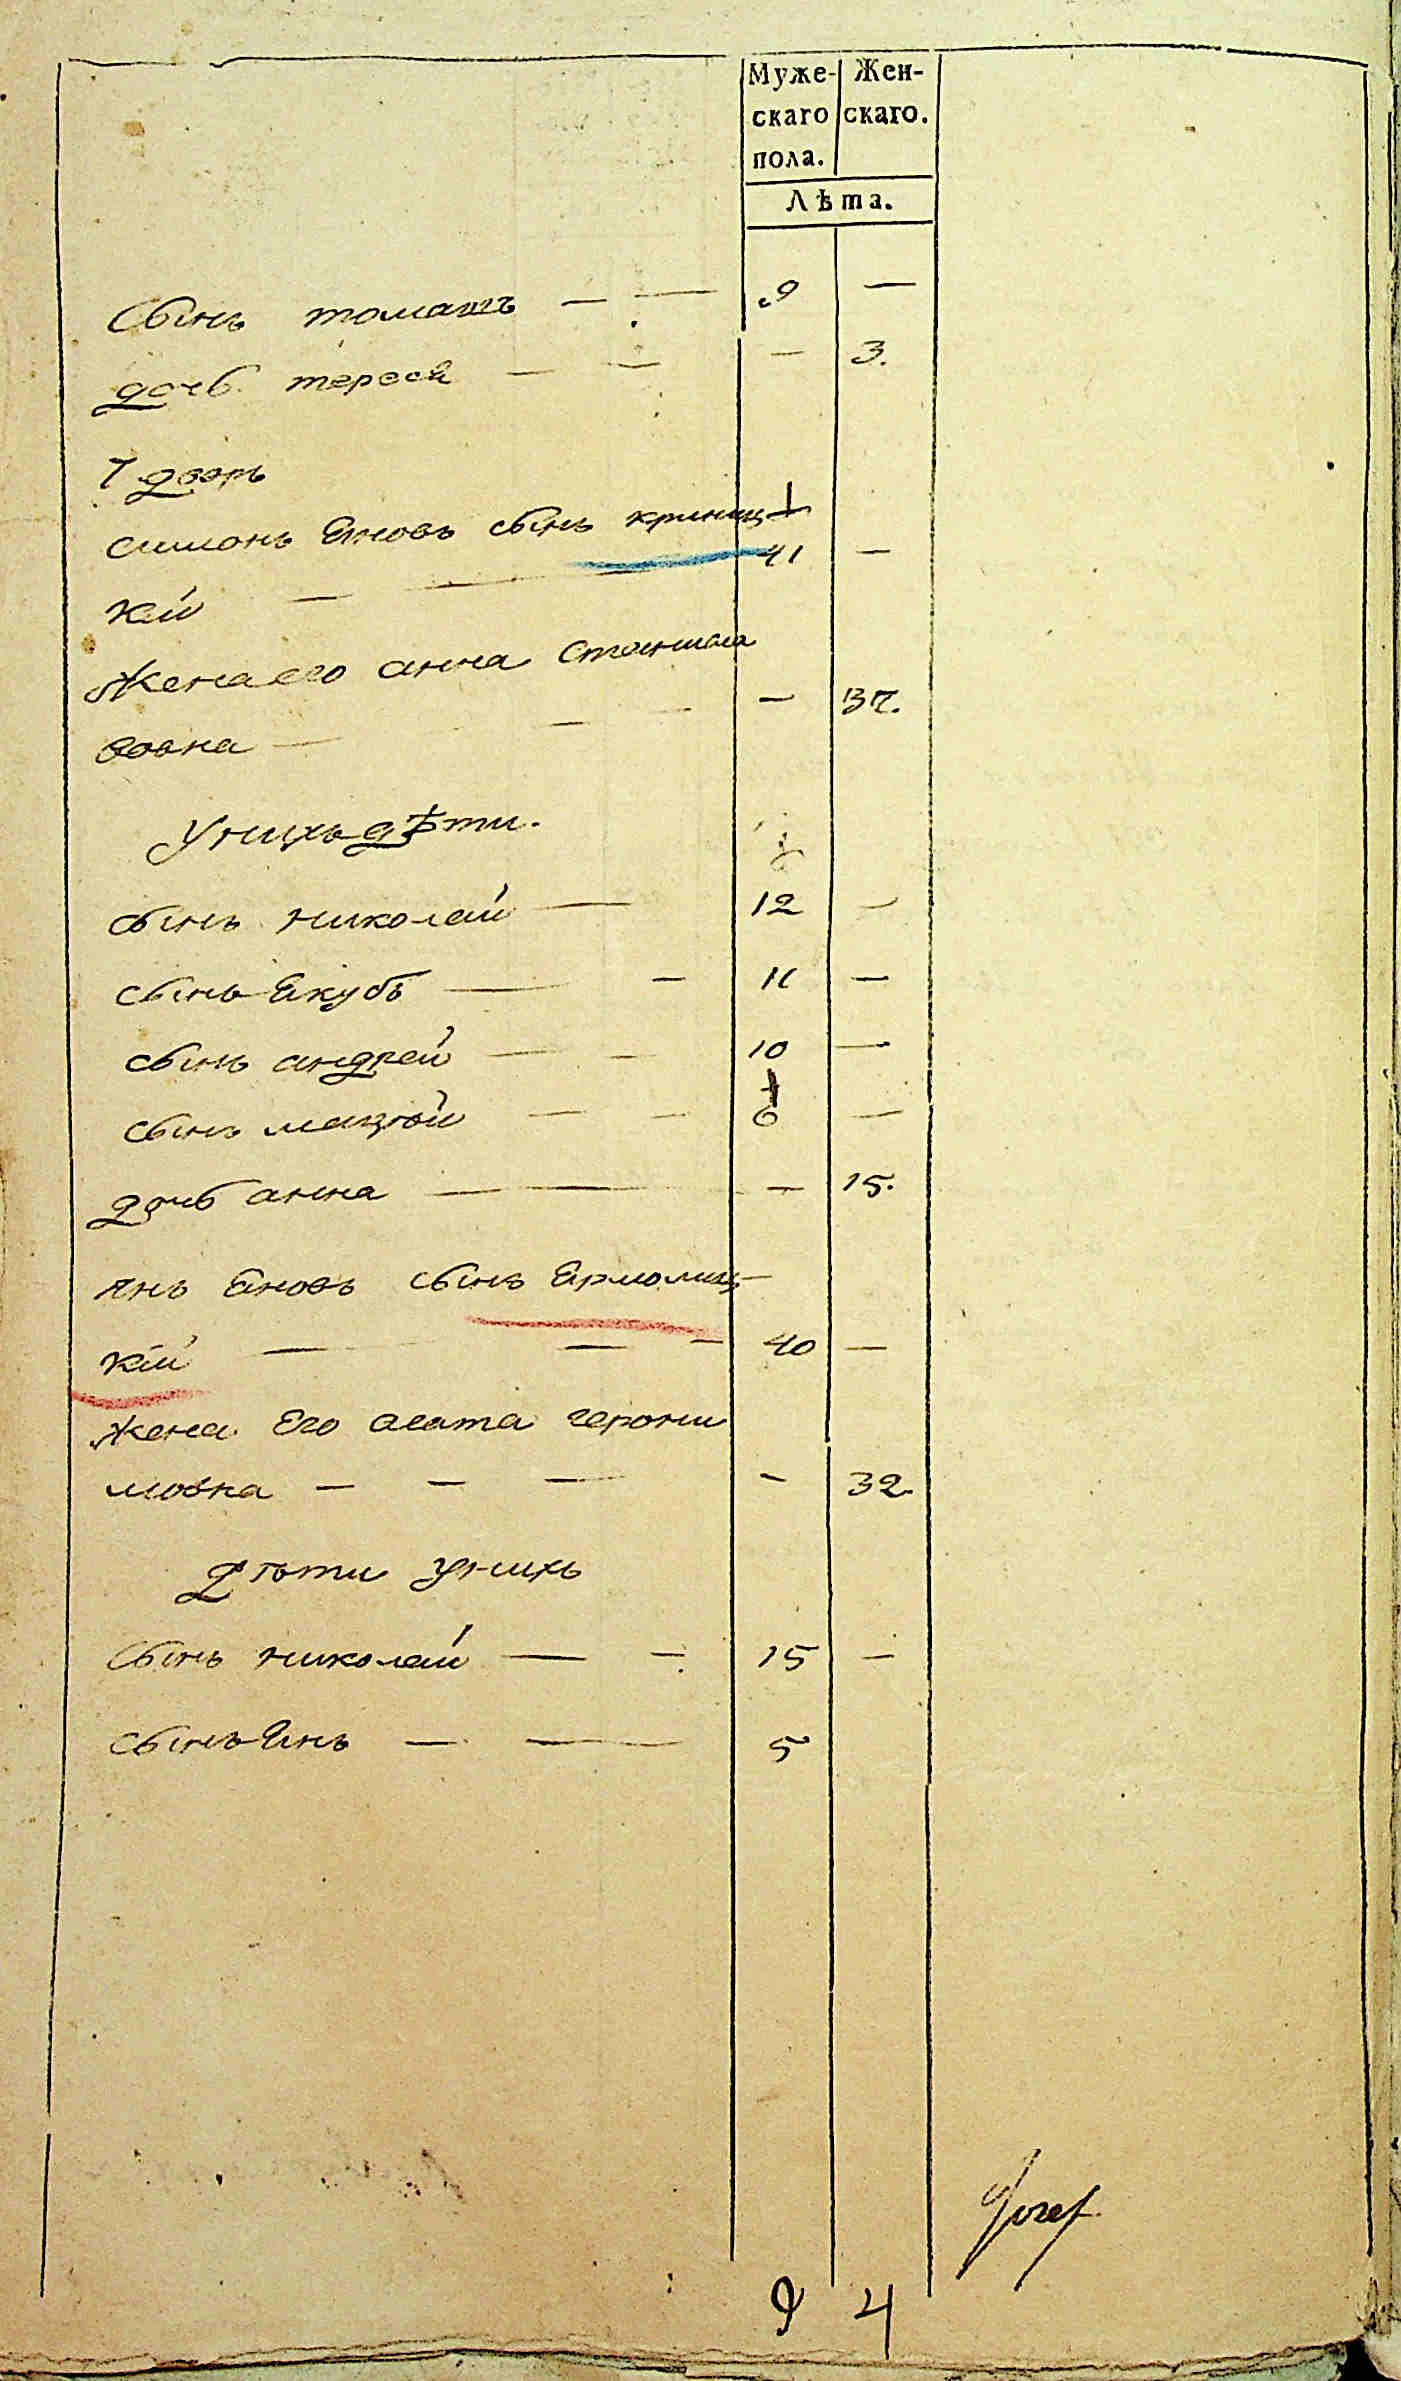 Муже- Жен-
скаго скаго.
пола.
Лѣта.
Сынъ томашъ — — 9 —
дочь тереса — — — 3.
7 дворъ
симонъ Яновъ сынъ криниц-
кій — — 41 —
Жена его анна Станисла
вовна — — — — 37.
У нихъ дѣти.
сынъ николай — 12 —
сынъ Якубъ — — 11 —
сынъ андрей — — 10 —
сынъ мацѣй — — 6 —
дочь анна — — — 15.
янъ Яновъ сынъ Ярмолиц-
кій — — — 40 —
жена Его агата герони
мовна — — — — 32.
дѣти у нихъ
Сынъ николай — — 15 —
сынъ Янъ — — 5
Jozef
9 4